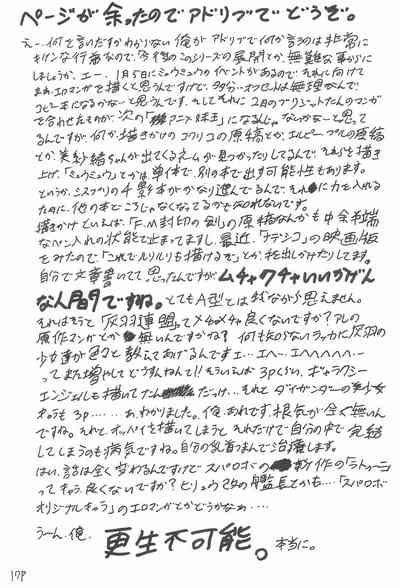 ページが余ったのでアドリブでどうぞ。
えー、何を言いだすかわからない俺がアドリブで何か言うのは非常に
キケンな行為なので、今後のこのシリーズの展開とか、無難な事からに
しましょうか。エー、1月5日にミュウミュウのイベントがあるので、それに向けて
まあ、エロマンガを描くと思うんですけど、多分、オフセットは無理なんで
コピー本になるかなーと思うんです。そしてそれに2月のブリジットたんのマンガ
を合わせたものが、次の「アニメ抹王」になるんじゃないかなーと思って
るんですが、何か、描きかけのコワリコの原稿とか、エルピー・プルの原稿
とか、美紗緒ちゃんが出てくるネームが見つかったりしてるんで、それらを描き
上げ、「ミュウミュウ」とかは単体で、別の本で出す可能性もあります。
というか、シスプリの千影本がかなり進んでるんで、それに力を入れる
ために、他の本どころじゃなくなってるかも知れないです。
描きかけといえば、「F.M封印の剣」の原稿なんかも中途半端
なペン入れの状態で止まってますし、最近、「ナデシコ」の映画版
をみたので「これでルリルリも描けるぞ」とか、牝を出しかけたりしてます。
自分で文章書いてて思ったんですが、ムチャクチャいいかげん
な人間ですね。とてもA型とは我ながら思えません。
それはそうと「灰羽連盟」ってメチャメチャ良くないですか?アレの
原作マンガとか無いんですかね?何も知らないラッカに灰羽の
少女達が色々と教えてあげるんですェ…エへ…エへへへへへ…
ってまた増やしてどうすんねん!!そういえば3Pぐらい、ギャラクシー
エンジェルも描いてたんだっけ…それとダイガンダーの美少女
キャラも3P……あ、わかりました。俺、あれです、根気が全く無いん
ですね。それと、オッパイを描いてしまうと、それだけで自分の中で完結
してしまうのも病気ですね。自分の乳首つまんで治療します。
はい、話は全く変わるんですけどスパロボの新作の「ラトゥーニ」
ってキャラ、良くないですか?ヒリュウ改の艦長とかも…「スパロボ
オリジナルキャラ」のエロマンガとかどうかなぁ…
うーん、俺、更生不可能。本当に。
17P